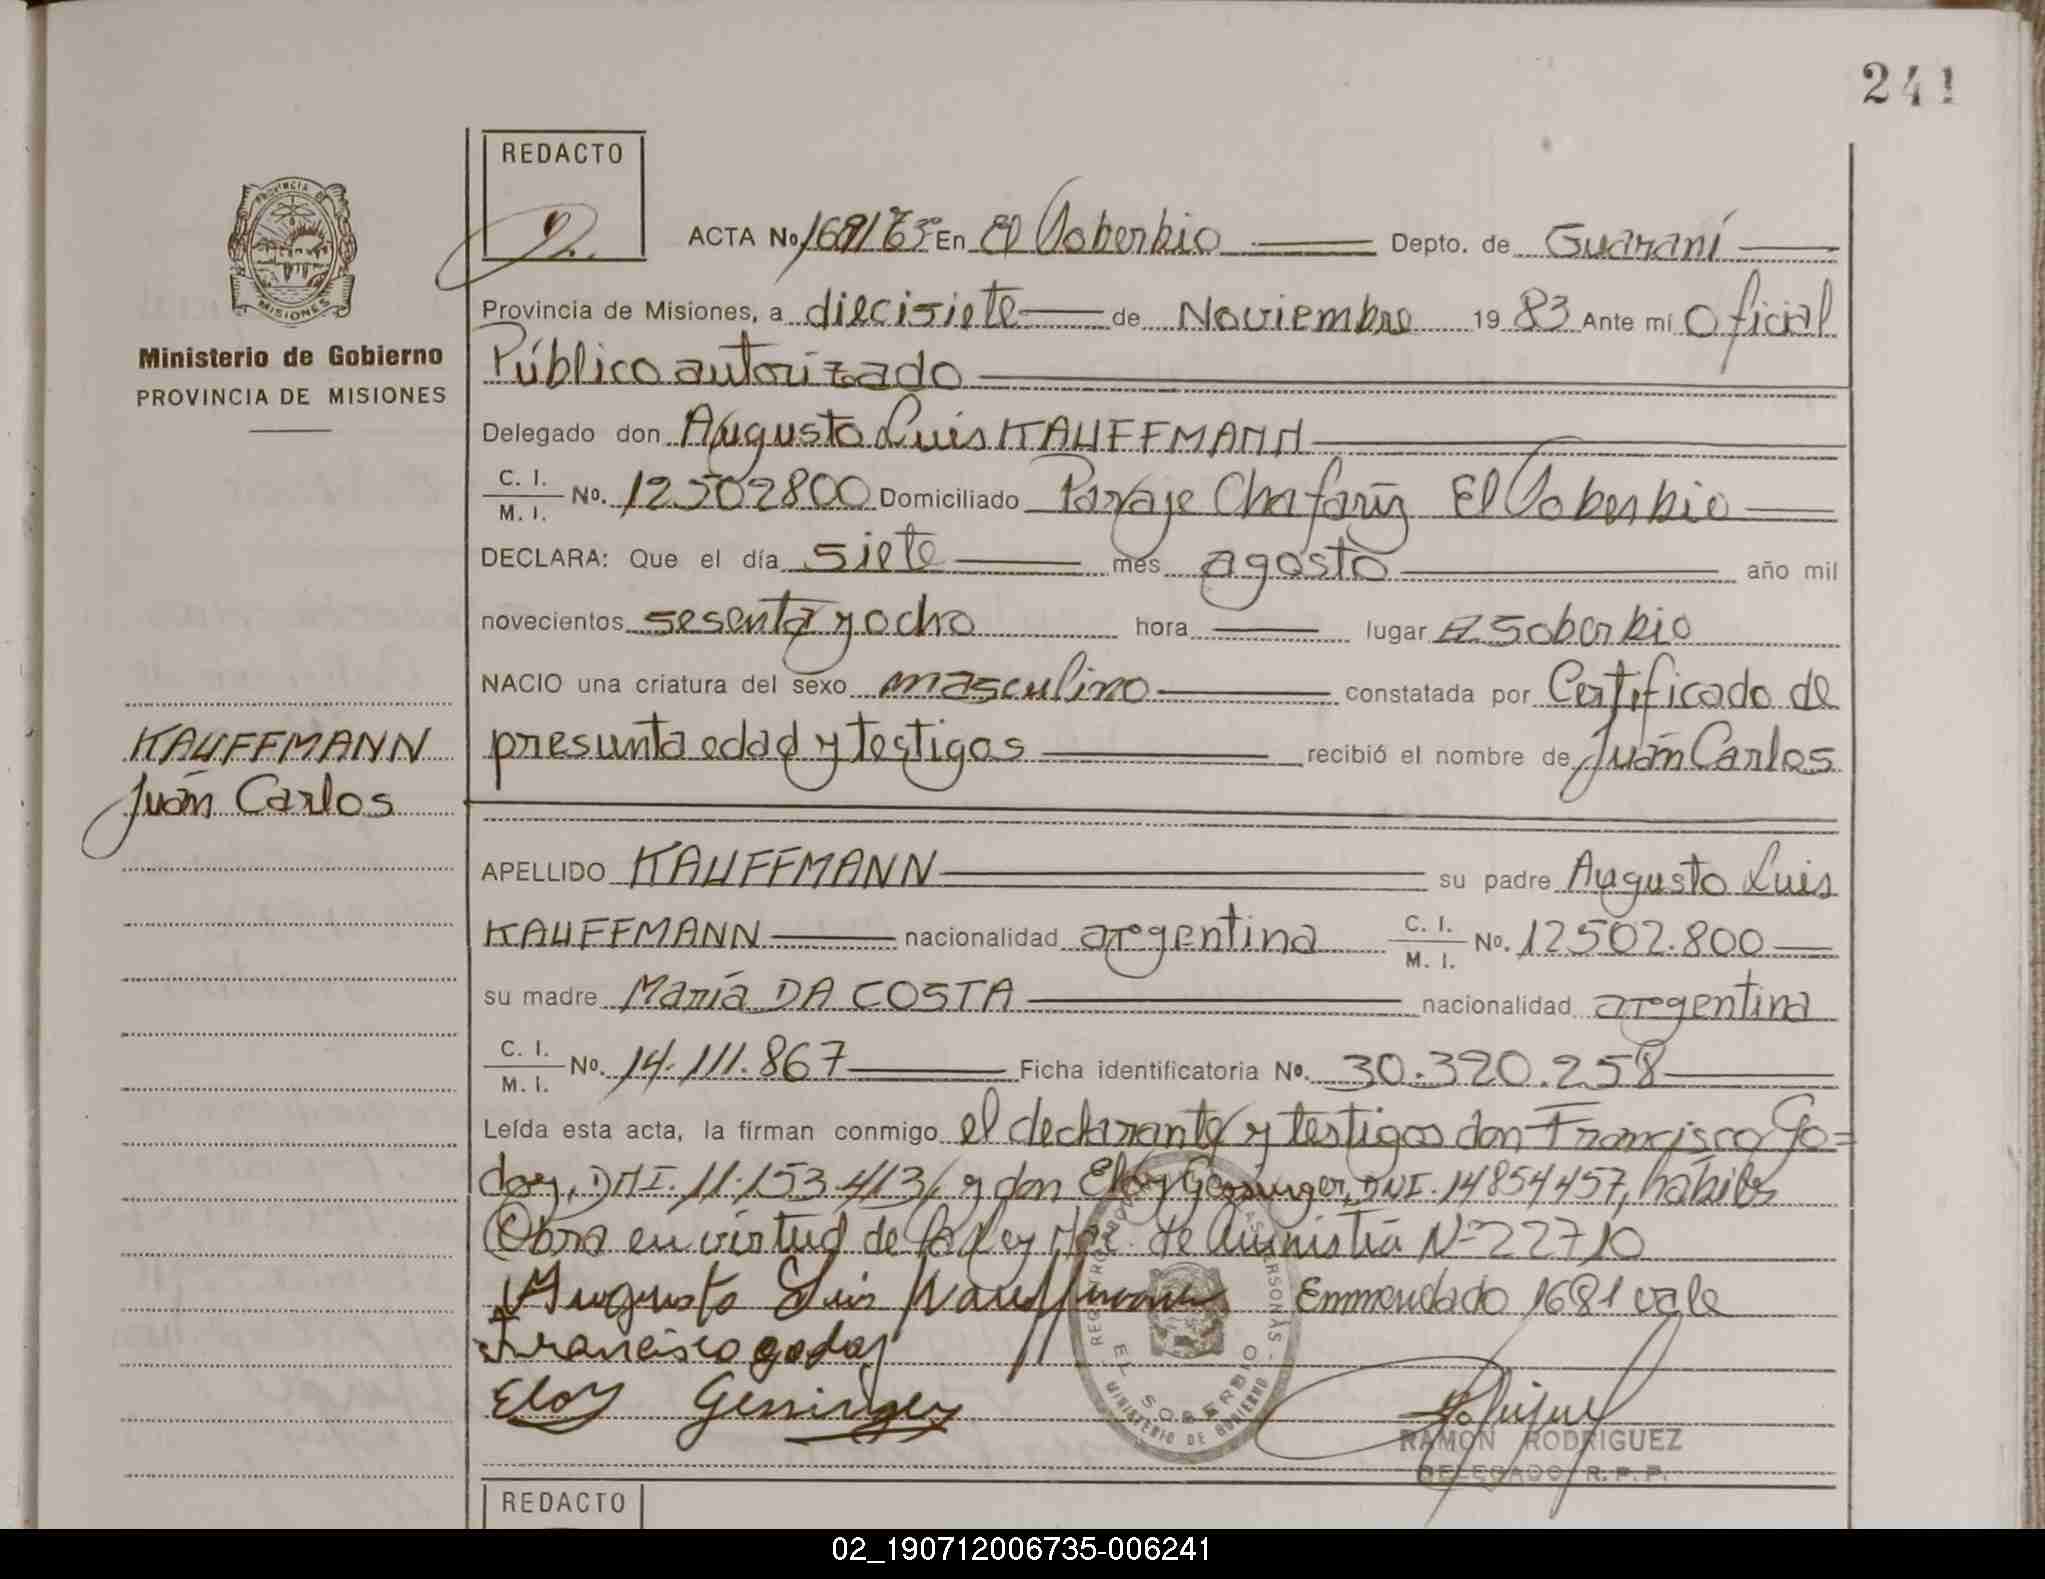 241
REDACTO
ACTA No 1681 En El Soberbio Depto. de Guaraní
Provincia de Misiones, a diecisiete de Noviembre 1983 Ante mí Oficial
Público autorizado
Ministerio de Gobierno
PROVINCIA DE MISIONES
Delegado don Augusto Luis KAUFFMANN
C. I.
M. I. No. 12502800 Domiciliado Paraje Chafariz El Soberbio
DECLARA: Que el día siete mes agosto año mil
novecientos sesenta y ocho hora lugar El Soberbio
NACIO una criatura del sexo masculino constatada por Certificado de
presunta edad y testigos recibió el nombre de Juan Carlos
KAUFFMANN
Juan Carlos
APELLIDO KAUFFMANN su padre Augusto Luis
KAUFFMANN nacionalidad argentina C. I. M. I. No. 12502.800
su madre María DA COSTA nacionalidad argentina
C. I.
M. I. No. 14.111.867 Ficha identificatoria No. 30.320.258
Leída esta acta, la firman conmigo el declarante y testigos don Francisco Go=
doy, DNI. 11.153.413 y don Eloy Gessinger, DNI. 14854457, hábiles
Obra en virtud de la Ley de Aminístia Nº 22710
Augusto Luis Kauffmann Enmendado 1681 vale
Francisco godoy
Eloy Gessinger
EL SOBERBIO
MINISTERIO DE GOBIERNO
RAMON RODRIGUEZ
DELEGADO R. P. P.
REDACTO
02_190712006735-006241